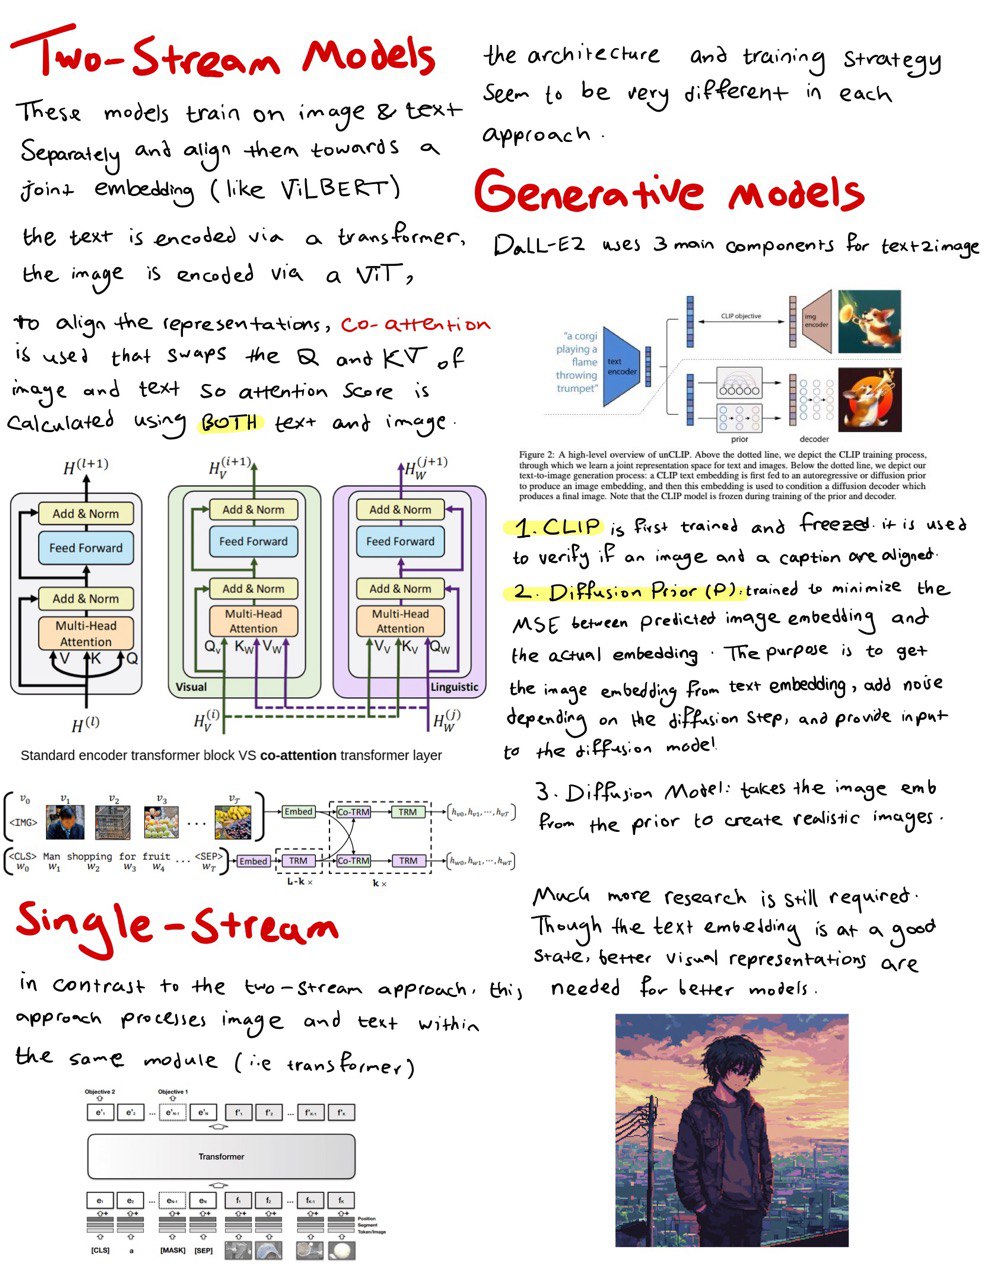 Two-Stream Models
These models train on image & text
Separately and align them towards a
joint embedding (like ViLBERT)
the text is encoded via a transformer,
the image is encoded via a ViT,
to align the representations, co-attention
is used that swaps the Q and KV of
image and text so attention score is
calculated using BOTH text and image.
H^(l+1)
Add & Norm
Feed Forward
Add & Norm
Multi-Head
Attention
V K Q
H^(l)
H_V^(i+1)
Add & Norm
Feed Forward
Add & Norm
Multi-Head
Attention
Q_V K_W V_W
Visual
H_V^(i)
H_W^(j+1)
Add & Norm
Feed Forward
Add & Norm
Multi-Head
Attention
V_V K_V Q_W
Linguistic
H_W^(j)
Standard encoder transformer block VS co-attention transformer layer
v_0 v_1 v_2 v_3 v_T
<IMG> ...
Embed Co-TRM TRM {h_v0, h_v1, ⋯, h_vT}
<CLS> Man shopping for fruit ... <SEP>
w_0 w_1 w_2 w_3 w_4 w_T
Embed TRM Co-TRM TRM {h_w0, h_w1, ⋯, h_wT}
L-k × k ×
Single-Stream
in contrast to the two-stream approach, this
approach processes image and text within
the same module (i.e transformer)
Objective 2 Objective 1
e'_1 e'_2 ... e'_N-1 e'_N f'_1 f'_2 ... f'_K-1 f'_K
Transformer
e_1 e_2 ... e_N-1 e_N f_1 f_2 ... f_K-1 f_K
Position
Segment
Token/Image
[CLS] a [MASK] [SEP]
the architecture and training strategy
seem to be very different in each
approach.
Generative Models
DaLL-E2 uses 3 main components for text2image
"a corgi
playing a
flame
throwing
trumpet"
text
encoder
CLIP objective
img
encoder
prior
decoder
Figure 2: A high-level overview of unCLIP. Above the dotted line, we depict the CLIP training process,
through which we learn a joint representation space for text and images. Below the dotted line, we depict our
text-to-image generation process: a CLIP text embedding is first fed to an autoregressive or diffusion prior
to produce an image embedding, and then this embedding is used to condition a diffusion decoder which
produces a final image. Note that the CLIP model is frozen during training of the prior and decoder.
1. CLIP is first trained and freezed. it is used
to verify if an image and a caption are aligned.
2. Diffusion Prior (P): trained to minimize the
MSE between predicted image embedding and
the actual embedding. The purpose is to get
the image embedding from text embedding, add noise
depending on the diffusion step, and provide input
to the diffusion model!
3. Diffusion Model: takes the image emb
from the prior to create realistic images.
Much more research is still required.
Though the text embedding is at a good
state, better visual representations are
needed for better models.